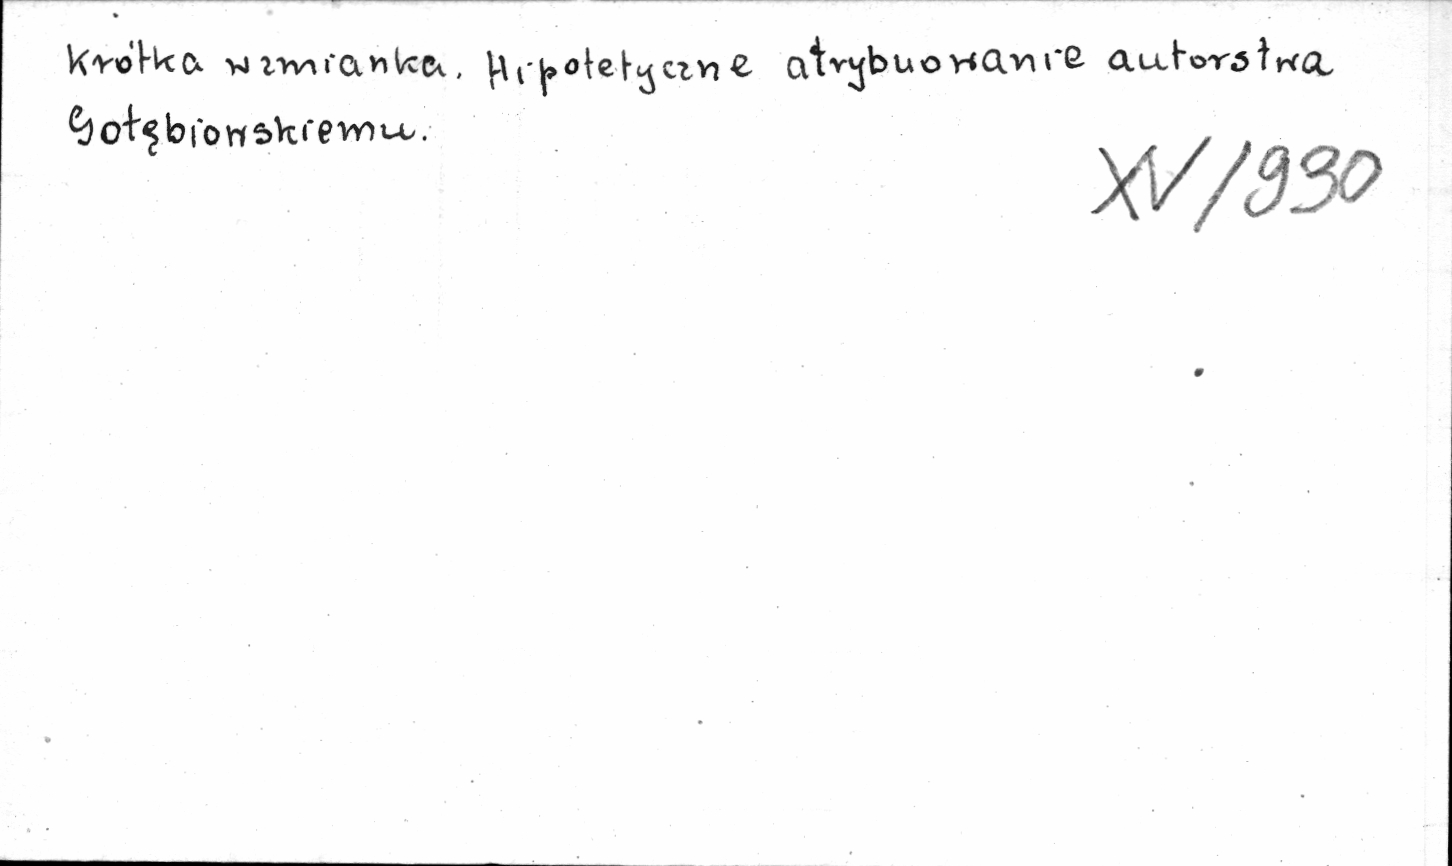 Krótka wzmianka. Hipotetyczne atrybuowanie autorstwa
Gołębiowskiemu.
XV/930